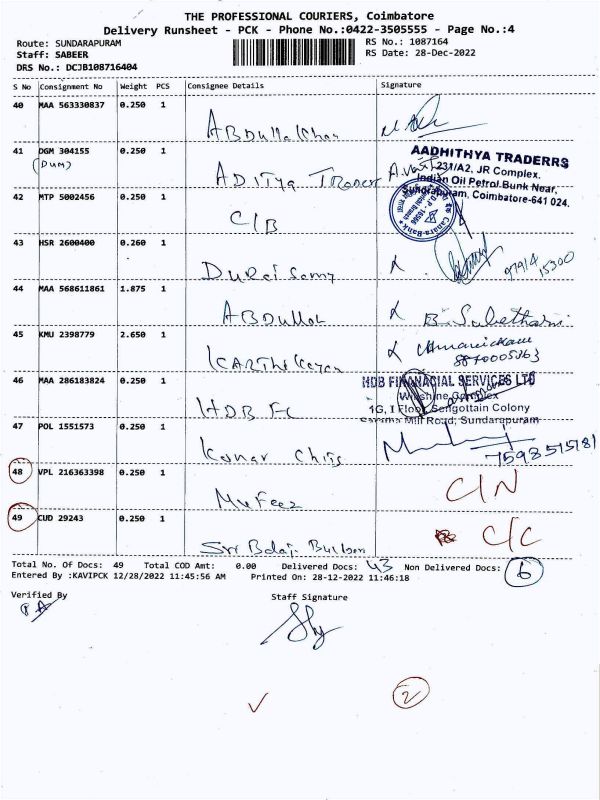 THE PROFESSIONAL COURIERS, Coimbatore
Delivery Runsheet - PCK - Phone No.:0422-3505555 - Page No.:4
Route: SUNDARAPURAM
RS No.: 1087164
Staff: SABEER
RS Date: 28-Dec-2022
DRS No.: DCJB108716404
S No Consignment No Weight PCS Consignee Details Signature
40 MAA 563330837 0.250 1
Abdulla Khan
41 DGM 304155 0.250 1
(DUM)
ADITYA Trader
AADHITHYA TRADERRS
231/A2, JR Complex.
Indian Oil Petrol Bunk Near,
Sundrapuram, Coimbatore-641 024.
42 MTP 5002456 0.250 1
C/B
Canara Bank
43 HSR 2600400 0.260 1
Durai Samy
97914 15300
44 MAA 568611861 1.875 1
Abdullah
45 KMU 2398779 2.650 1
Karthikeyan
8870005863
46 MAA 286183824 0.250 1
HDB Fc
HDB FINANACIAL SERVICES LTD
Winshine Complex
1G, I Floor, Sengottain Colony
Mill Road, Sundarapuram
47 POL 1551573 0.250 1
Konar Chips
7598515181
48 VPL 216363398 0.250 1
Mufeez
C/N
49 CUD 29243 0.250 1
Sri Balaji
C/C
Total No. Of Docs: 49 Total COD Amt: 0.00 Delivered Docs: 43 Non Delivered Docs: 6
Entered By :KAVIPCK 12/28/2022 11:45:56 AM Printed On: 28-12-2022 11:46:18
Verified By
Staff Signature
2